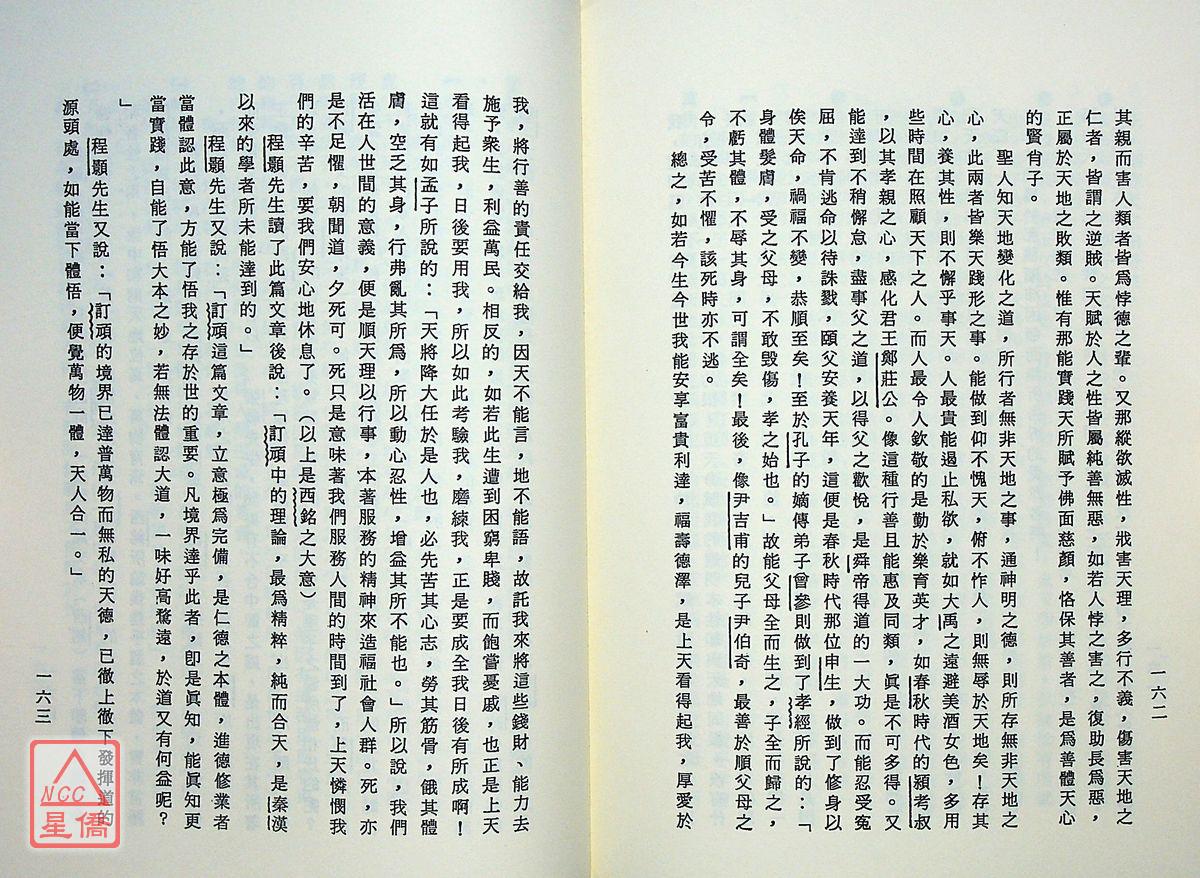 其親而害人類者皆爲悖德之輩。又那縱欲滅性，戕害天理，多行不義，傷害天地之
仁者，皆謂之逆賊。天賦於人之性皆屬純善無惡，如若人悖之害之，復助長爲惡，
正屬於天地之敗類。惟有那能實踐天所賦予佛面慈顏，恪保其善者，是爲善體天心
的賢肖子。
聖人知天地變化之道，所行者無非天地之事，通神明之德，則所存無非天地之
心，此兩者皆樂天踐形之事。能做到仰不愧天，俯不怍人，則無辱於天地矣！存其
心，養其性，則不懈乎事天。人最貴能遏止私欲，就如大禹之遠避美酒女色，多用
些時間在照顧天下之人。而人最令人欽敬的是勤於樂育英才，如春秋時代的潁考叔
，以其孝親之心，感化君王鄭莊公。像這種行善且能惠及同類，眞是不可多得。又
能達到不稍懈怠，盡事父之道，以得父之歡悅，是舜帝得道的一大功。而能忍受冤
屈，不肯逃命以待誅戮，頤父安養天年，這便是春秋時代那位申生，做到了修身以
俟天命，禍福不變，恭順至矣！至於孔子的嫡傳弟子曾參則做到了孝經所說的：「
身體髮膚，受之父母，不敢毀傷，孝之始也。」故能父母全而生之，子全而歸之，
不虧其體，不辱其身，可謂全矣！最後，像尹吉甫的兒子尹伯奇，最善於順父母之
令，受苦不懼，該死時亦不逃。
總之，如若今生今世我能安享富貴利達，福壽德澤，是上天看得起我，厚愛於
一六二
我，將行善的責任交給我，因天不能言，地不能語，故託我來將這些錢財、能力去
施予衆生，利益萬民。相反的，如若此生遭到困窮卑賤，而飽嘗憂戚，也正是上天
看得起我，日後要用我，所以如此考驗我，磨練我，正是要成全我日後有所成啊！
這就有如孟子所說的：「天將降大任於是人也，必先苦其心志，勞其筋骨，餓其體
膚，空乏其身，行弗亂其所爲，所以動心忍性，增益其所不能也。」所以說，我們
活在人世間的意義，便是順天理以行事，本著服務的精神來造福社會人群。死，亦
是不足懼，朝聞道，夕死可。死只是意味著我們服務人間的時間到了，上天憐憫我
們的辛苦，要我們安心地休息了。（以上是西銘之大意）
程顥先生讀了此篇文章後說：「訂頑中的理論，最爲精粹，純而合天，是秦漢
以來的學者所未能達到的。」
程顥先生又說：「訂頑這篇文章，立意極爲完備，是仁德之本體，進德修業者
當體認此意，方能了悟我之存於世的重要。凡境界達乎此者，卽是眞知，能眞知更
當實踐，自能了悟大本之妙，若無法體認大道，一味好高騖遠，於道又有何益呢？
」
程顥先生又說：「訂頑的境界已達普萬物而無私的天德，已徹上徹下發揮道的
源頭處，如能當下體悟，便覺萬物一體，天人合一。」
一六三
NCC
星僑